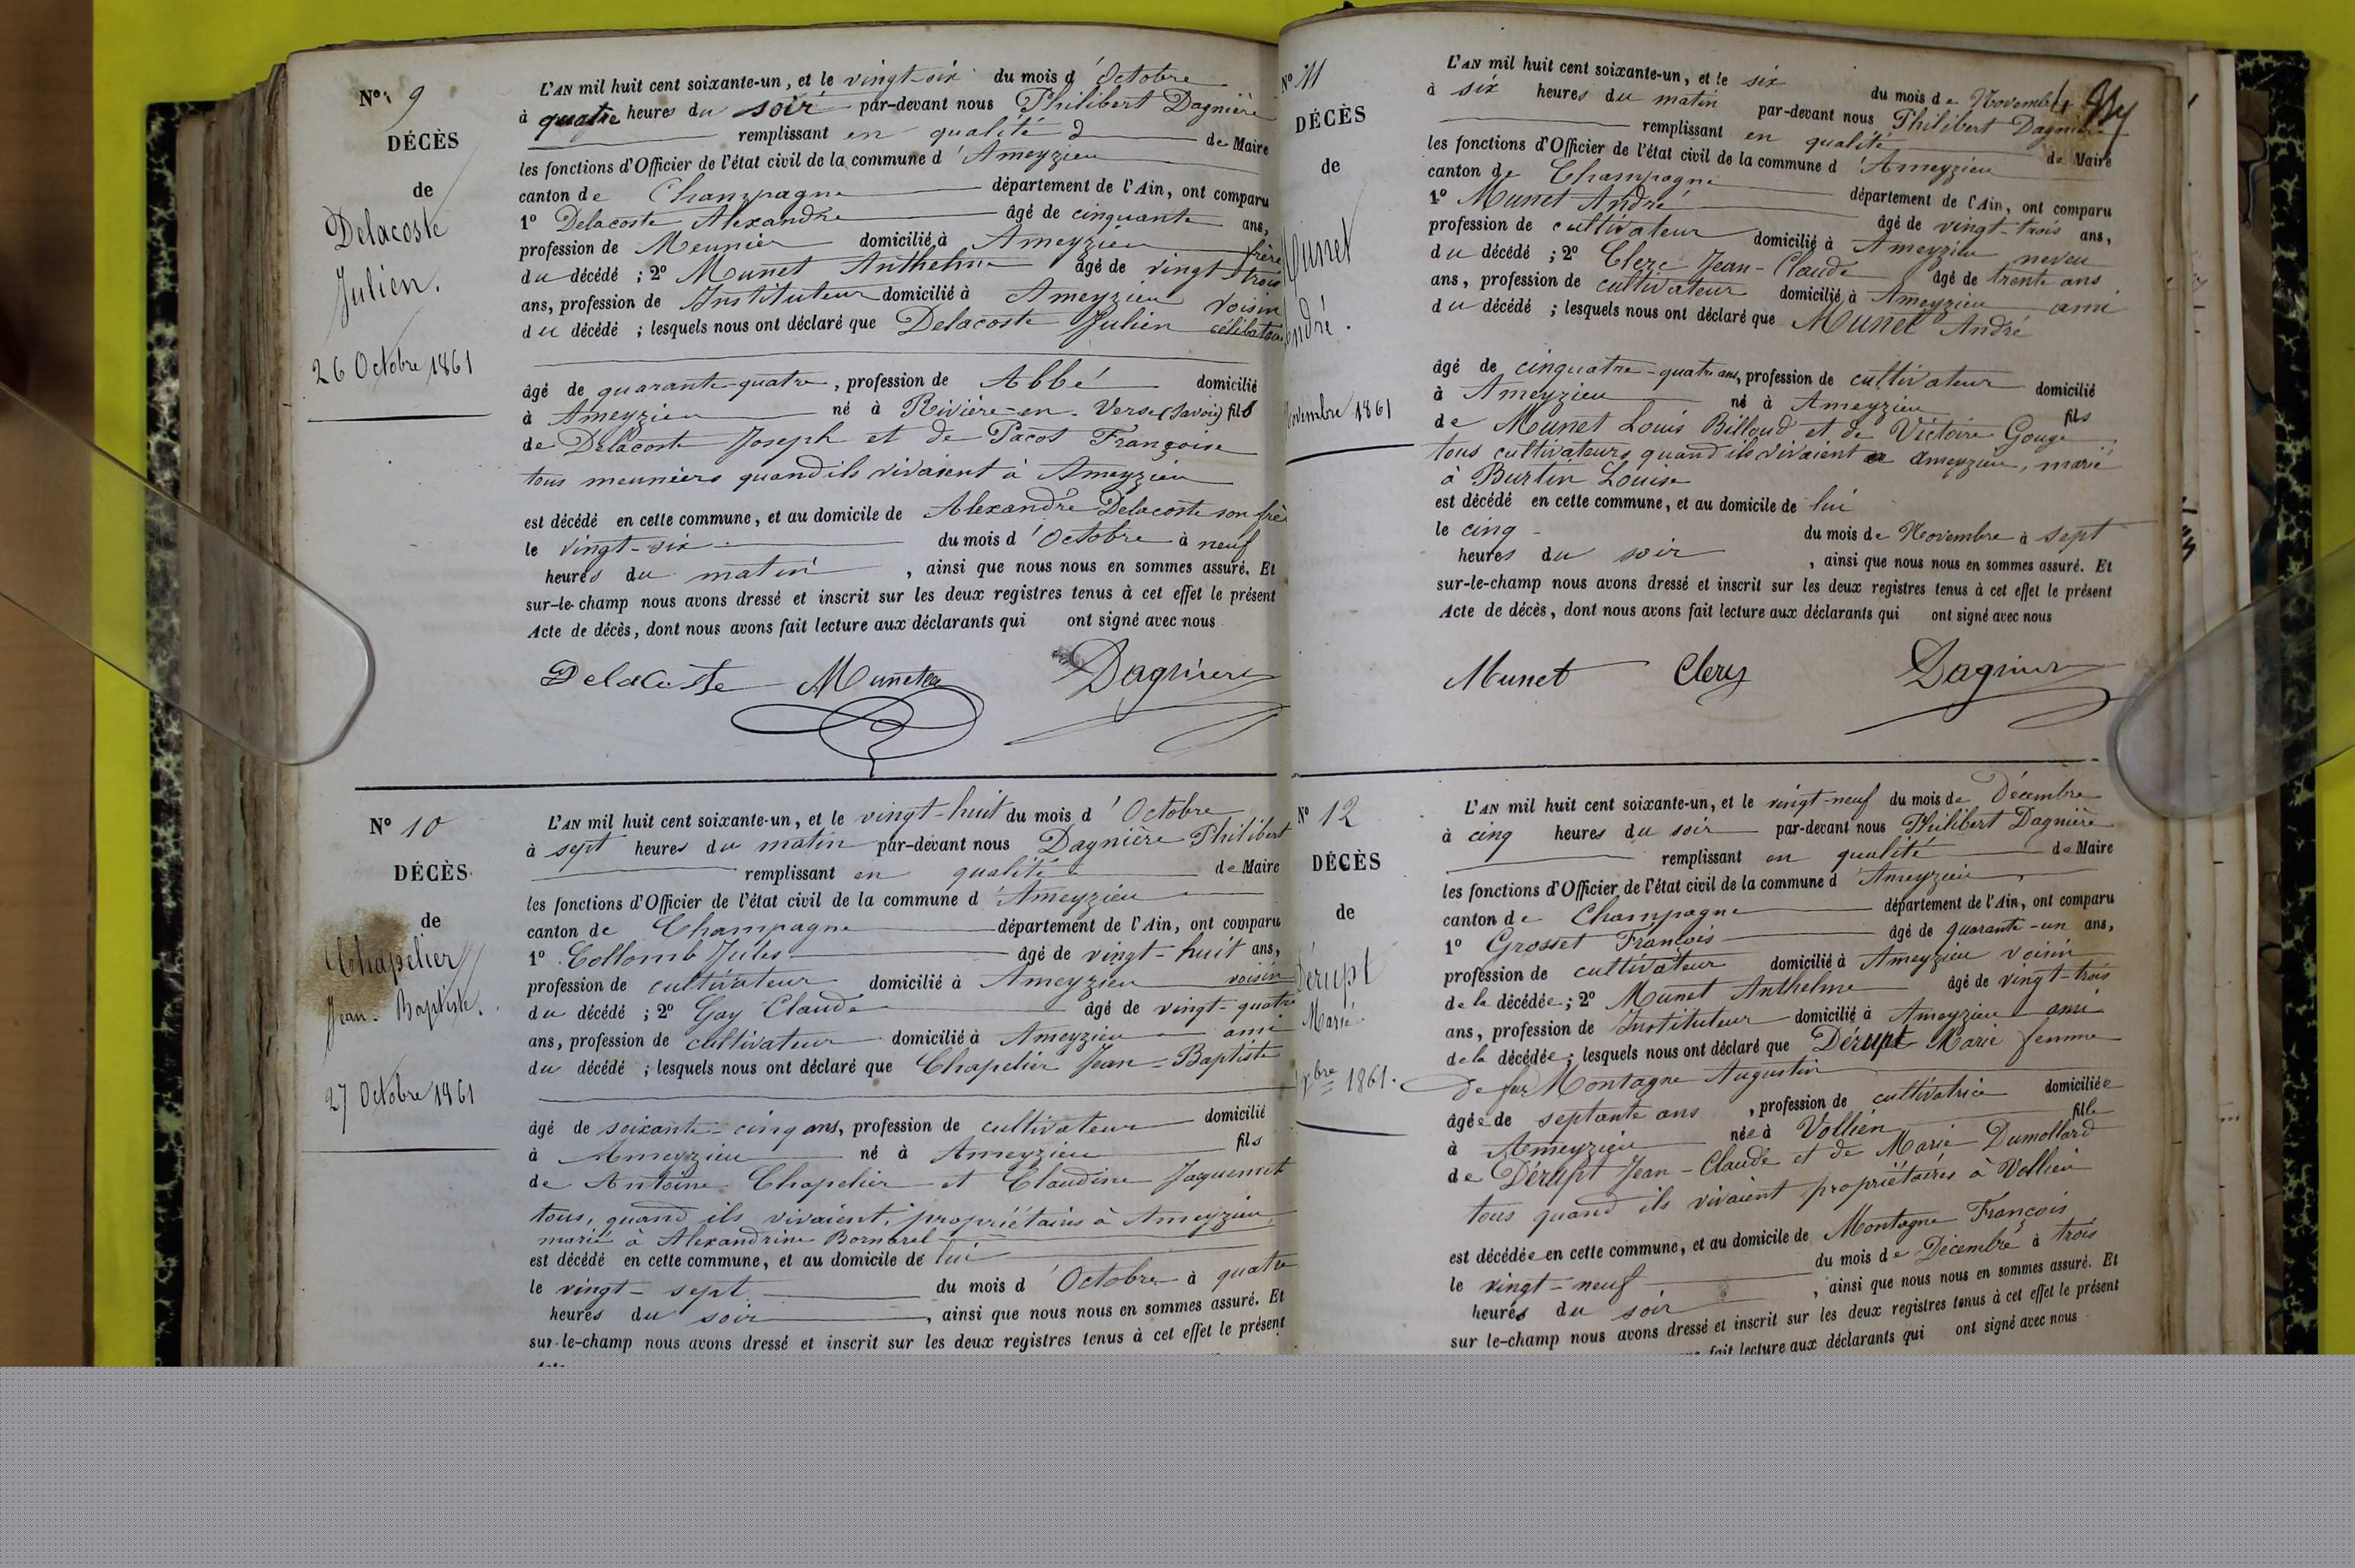 N° 9
DÉCÈS
de
Delacoste
Julien.
26 Octobre 1861
L'AN mil huit cent soixante-un, et le vingt-six du mois d'Octobre
à quatre heures du soir par-devant nous Philibert Dagnière
remplissant en qualité d de Maire
les fonctions d'Officier de l'état civil de la commune d'Ameyzieu
canton de Champagne département de l'Ain, ont comparu
1° Delacoste Alexandre âgé de cinquante ans,
profession de Meunier domicilié à Ameyzieu frère
du décédé ; 2° Munet Anthelme âgé de vingt-trois
ans, profession de Instituteur domicilié à Ameyzieu voisin
du décédé ; lesquels nous ont déclaré que Delacoste Julien célibataire
âgé de quarante-quatre, profession de Abbé domicilié
à Ameyzieu né à Rivière-en-Verse (Savoie) fils
de Delacoste Joseph et de Pacot Françoise
tous meuniers quand ils vivaient à Ameyzieu
est décédé en cette commune, et au domicile de Alexandre Delacoste son frère
le vingt-six du mois d'Octobre à neuf
heures du matin, ainsi que nous nous en sommes assuré. Et
sur-le-champ nous avons dressé et inscrit sur les deux registres tenus à cet effet le présent
Acte de décès, dont nous avons fait lecture aux déclarants qui ont signé avec nous
Delacoste Munet Dagniere
N° 10
DÉCÈS
de
Chapelier
Jean-Baptiste.
27 Octobre 1861
L'AN mil huit cent soixante-un, et le vingt-huit du mois d'Octobre
à sept heures du matin par-devant nous Dagnière Philibert
remplissant en qualité de Maire
les fonctions d'Officier de l'état civil de la commune d'Ameyzieu
canton de Champagne département de l'Ain, ont comparu
1° Collomb Jules âgé de vingt-huit ans,
profession de cultivateur domicilié à Ameyzieu voisin
du décédé ; 2° Gay Claude âgé de vingt-quatre
ans, profession de cultivateur domicilié à Ameyzieu ami
du décédé ; lesquels nous ont déclaré que Chapelier Jean-Baptiste
âgé de soixante-cinq ans, profession de cultivateur domicilié
à Ameyzieu né à Ameyzieu fils
de Antoine Chapelier et Claudine Jaquemet
tous, quand ils vivaient, propriétaires à Ameyzieu,
marié à Alexandrine Bornarel
est décédé en cette commune, et au domicile de lui
le vingt-sept du mois d'Octobre à quatre
heures du soir, ainsi que nous nous en sommes assuré. Et
sur-le-champ nous avons dressé et inscrit sur les deux registres tenus à cet effet le présent
N° 11
DÉCÈS
de
Munet
André.
Novembre 1861
L'AN mil huit cent soixante-un, et le six du mois de Novembre
à six heures du matin par-devant nous Philibert Dagnière
remplissant en qualité de Maire
les fonctions d'Officier de l'état civil de la commune d'Ameyzieu
canton de Champagne département de l'Ain, ont comparu
1° Munet André âgé de vingt-trois ans,
profession de cultivateur domicilié à Ameyzieu neveu
du décédé ; 2° Clerc Jean-Claude âgé de trente ans
ans, profession de cultivateur domicilié à Ameyzieu ami
du décédé ; lesquels nous ont déclaré que Munet André
âgé de cinquatre-quatre ans, profession de cultivateur domicilié
à Ameyzieu né à Ameyzieu fils
de Munet Louis Billoud et de Victoire Gouge
tous cultivateurs quand ils vivaient à Ameyzieu, marié
à Burtin Louise
est décédé en cette commune, et au domicile de lui
le cinq du mois de Novembre à sept
heures du soir, ainsi que nous nous en sommes assuré. Et
sur-le-champ nous avons dressé et inscrit sur les deux registres tenus à cet effet le présent
Acte de décès, dont nous avons fait lecture aux déclarants qui ont signé avec nous
Munet Clerc Dagniere
N° 12
DÉCÈS
de
Dérupt
Marie
xbre 1861.
L'AN mil huit cent soixante-un, et le vingt-neuf du mois de Décembre
à cinq heures du soir par-devant nous Philibert Dagnière
remplissant en qualité de Maire
les fonctions d'Officier de l'état civil de la commune d'Ameyzieu
canton de Champagne département de l'Ain, ont comparu
1° Grosset François âgé de quarante-un ans,
profession de cultivateur domicilié à Ameyzieu voisin
de la décédée ; 2° Munet Anthelme âgé de vingt-trois
ans, profession de Instituteur domicilié à Ameyzieu ami
de la décédée ; lesquels nous ont déclaré que Dérupt Marie femme
de feu Montagne Augustin
âgée de septante ans, profession de cultivatrice domiciliée
à Ameyzieu née à Vollien fille
de Dérupt Jean-Claude et de Marie Dumollard
tous quand ils vivaient propriétaires à Vollien
est décédée en cette commune, et au domicile de Montagne François
le vingt-neuf du mois de Décembre à trois
heures du soir, ainsi que nous nous en sommes assuré. Et
sur le-champ nous avons dressé et inscrit sur les deux registres tenus à cet effet le présent
fait lecture aux déclarants qui ont signé avec nous